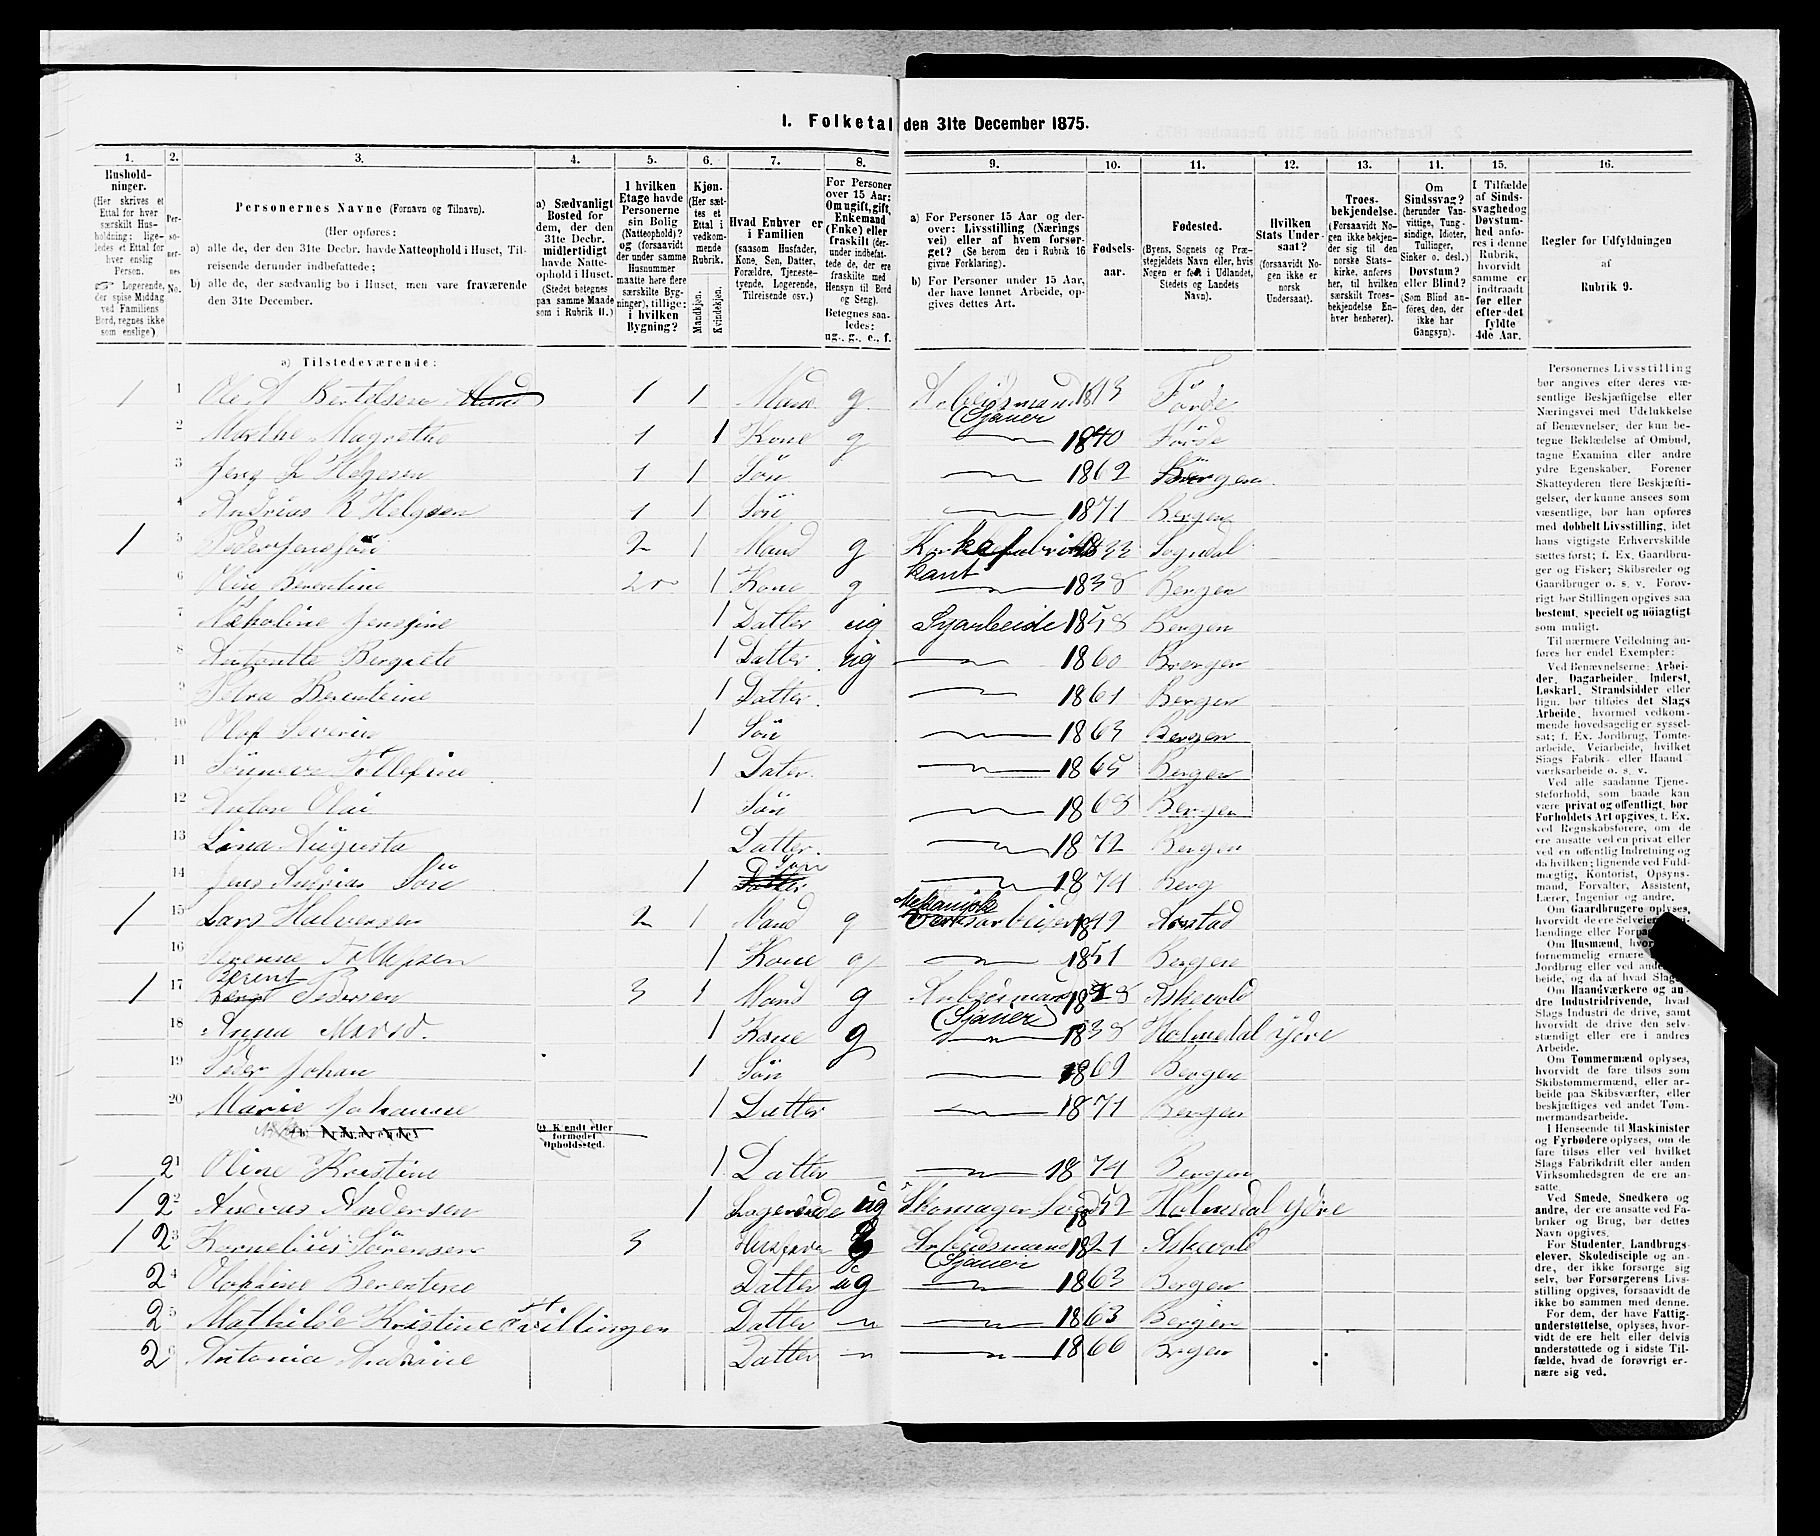 1. Folketal den 31te December 1875.
1. 2. 3. 4. 5. 6. 7. 8. 9. 10. 11. 12. 13. 14. 15. 16.
Husholdninger.
(Her skrives et
Ettal for hver
særskilt Husholdning; ligeledes et Ettal for
hver enslig
Person.
Logerende,
der spise Middag
ved Familiens
Bord, regnes ikke
som enslige.)
Personernes No.
Personernes Navne (Fornavn og Tilnavn).
(Her opføres:
a) alle de, der den 31te Decbr. havde Natteophold i Huset, Tilreisende derunder indbefattede;
b) alle de, der sædvanlig bo i Huset, men vare fraværende
den 31te December.
a) Sædvanligt
Bosted for
dem, der den
31te Decbr.
midlertidigt
havde Natteophold i Huset.
(Stedet betegnes
paa samme Maade
som i Rubrik 11.)
I hvilken
Etage havde
Personerne
sin Bolig
(Natteophold)?
og (forsaavidt
der under samme
Husnummer
maatte høre flere
særskilte Bygninger), tillige:
i hvilken
Bygning?
Kjøn.
(Her sættes et
Ettal i
vedkommende
Rubrik.
Mandkjøn.
Kvindekjøn.
Hvad Enhver er
i Familien
(saasom Husfader,
Kone, Søn, Datter,
Forældre, Tjenestetyende, Logerende,
Tilreisende osv.)
For Personer
over 15 Aar:
Om ugift, gift,
Enkemand
(Enke) eller
fraskilt (derunder indbefattede de, der ere
fraskilte med
Hensyn til Bord
og Seng).
Betegnes saaledes:
ug., g., e., f.
a) For Personer 15 Aar og derover: Livsstilling (Næringsvei) eller af hvem forsørget? (Se herom den i Rubrik 16
givne Forklaring).
b) For Personer under 15 Aar,
der have lønnet Arbeide, opgives dettes Art.
Fødselsaar.
Fødested.
(Byens, Sognets og Præstegjeldets Navn eller, hvis
Nogen er født i Udlandet,
Stedets og Landets
Navn).
Hvilken
Stats Undersaat?
(forsaavidt Nogen ikke er
norsk
Undersaat).
Troesbekjendelse.
(Forsaavidt Nogen ikke bekjender sig til den
norske Statskirke, anføres
her, til hvilken
særskilt Troesbekjendelse Enhver henhører).
Om
Sindssvag?
(herunder Vanvittige, Tungsindige, Idioter,
Tullinger,
Sinker o. desl.)
Døvstum?
eller Blind?
(Som Blind anføres den, der
ikke har
Gangsyn).
I Tilfælde
af Sindssvaghed og
Døvstumhed anføres i denne
Rubrik,
hvorvidt
samme er
indtraadt
før eller
efter det
fyldte
4de Aar.
Regler for Udfyldningen
af
Rubrik 9.
a) Tilstedeværende:
1 1 Ole A Bertelsen 1 1 Mand g Arbeidsmand (Sjauer) 1813 Förde
2 Marthe Magrethe 1 1 Kone g 1840 Förde
3 Jens L Helgesen 1 1 Sön 1862 Bergen
4 Andreas R Helgesen 1 1 Sön 1871 Bergen
1 5 Peder Jensson 2 1 Mand g Korkefabrikkant 1833 Sogndal
6 Oline Berentine 2 1 Kone g 1838 Bergen
7 Nikoline Jensine 1 Datter ug Syarbeide 1858 Bergen
8 Antonette Bergitte 1 Datter ug 1860 Bergen
9 Petra Berentine 1 Datter 1861 Bergen
10 Olaf Severin 1 Sön 1863 Bergen
11 Tollefine 1 Dater 1865 Bergen
12 Anton Olai 1 Sön 1868 Bergen
13 Lina Augusta Datter 1872 Bergen
14 Jens Andreas Sön 1 Sön 1874 Berg
1 15 Lars Halvorsen 2 1 Mand g Mekanisk Verksarbeider 1849 Aarstad
16 Severine Tollefsen 1 Kone g 1851 Bergen
1 17 Berent Pedersen 3 1 Mand g Arbeidsmand (Sjauer) 1828 Askevold
18 Anna 1 Kone g 1838 Holmedal ydre
19 Peder Johan 1 Sön 1869 Bergen
20 Marie Johanne 1 Datter 1871 Bergen
b) Kjendt eller
formodet
Opholdssted.
21 Oline Kristine 1 Datter 1874 Bergen
1 22 Andreas Andersen 1 Logerende ug Skomager Svend 1852 Holmedal ydre
1 23 Kornelius Sörensen 3 Husfader Arbeidsmand Sjauer 1821 Askevold
24 Olophine Berentine Datter ug 1863 Bergen
25 Mathilde Kristine Tvillinger Datter 1863 Bergen
26 Antonia Andrine Datter 1866 Bergen
Personernes Livsstilling
bør angives efter deres væsentlige Beskjæftigelse eller
Næringsvei med Udelukkelse
af Benævnelser, der kun betegne Beklædelse af Ombud,
tagne Examina eller andre
ydre Egenskaber. Forener
Skatteyderen flere Beskjæftigelser, der kunne ansees som
væsentlige, bør han opføres
med dobbelt Livsstilling, idet
hans vigtigste Erhvervskilde
sættes først; f. Ex. Gaardbruger og Fisker; Skibsreder og
Gaardbruger o. s. v. Forøvrigt bør Stillingen opgives saa
bestemt, specielt og nöiagtigt
som muligt.
Til nærmere Veiledning anføres her endel Exempler:
Ved Benævnelserne: Arbeider, Dagarbeider, Inderst,
Løskarl, Strandsidder eller
lign. bør tilføies det Slags
Arbeide, hvormed vedkommende hovedsagelig er sysselsat; f. Ex. Jordbrug, Tomtearbeide, Veiarbeide, hvilket
Slags Fabrik- eller Haandværksarbeide o. s. v.
Ved alle saadanne Tjenesteforhold, som baade kan
være privat og offentligt, bør
Forholdets Art opgives, t. Ex.
ved Regnskabsførere, om de
ere ansatte ved en privat eller
ved en offentlig Indretning og
da hvilken; lignende ved Fuldmægtig, Kontorist, Opsynsmand, Forvalter, Assistent,
Lærer, Ingeniør og andre.
Om Gaardbrugere oplyses,
hvorvidt de ere
Om Husmænd,
fornemmelig ernære
Jordbrug eller ved
beide, og da af hvad
Om Haandværkere og andre Industridrivende, hvad
Slags Industri de drive, samt
hvorvidt de drive den selvstændigt eller ere i andres
Arbeide.
Om Tømmermænd oplyses,
hvorvidt de fare tilsøs som
Skibstømmermænd, eller arbeide paa Skibsværfter, eller
beskjæftiges ved andet Tømmermandsarbeide.
I Henseende til Maskinister
og Fyrbødere oplyses, om de
fare tilsøs eller ved hvilket
Slags Fabrikdrift eller anden
Virksomhedsgren de ere ansatte.
Ved Smede, Snedkere og
andre, der ere ansatte ved Fabriker og Brug, bør dettes
Navn opgives.
For Studenter, Landbrugselever, Skoledisciple og andre, der ikke forsørge sig
selv, bør Forsørgerens Livsstilling opgives, forsaavidt de
ikke bo sammen med denne.
For dem, der have Fattigunderstøttelse, oplyses, hvorvidt de ere helt eller delvis
understøttede og i sidste Tilfælde, hvad de forøvrigt ernære sig ved.